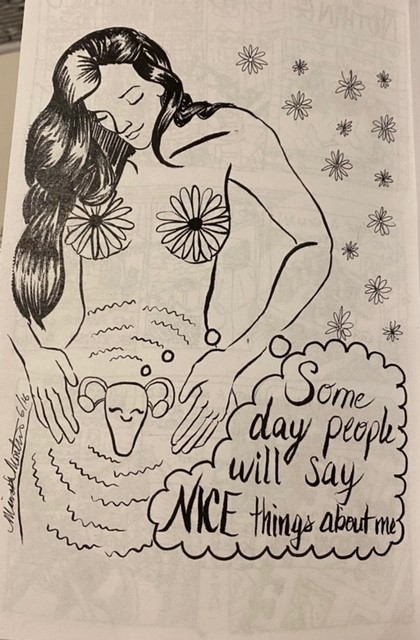 Some
day people
will say
NICE things about me
6/16